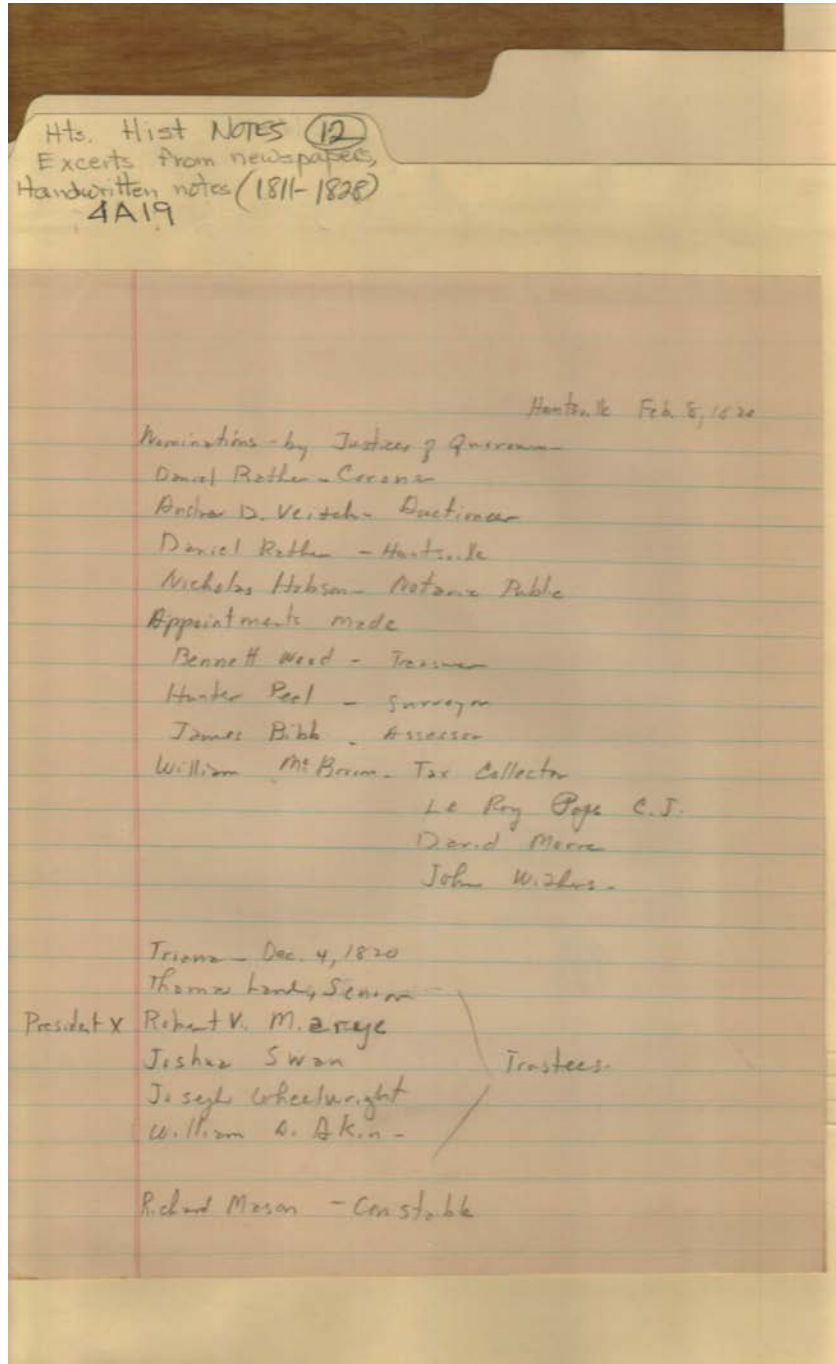 Hts. Hist NOTES 12
Excerts from newspapers,
Handwritten notes (1811-1828)
4A19
Huntsville Feb 8, 1820
Nominations - by Justices of Quorum
Daniel Rather - Coroner
Andrew D. Veitch - Auctioneer
Daniel Rather - Huntsville
Nicholas Hobson - Notarie Public
Appointments made
Bennett Wood - Treasurer
Hunter Peel - Surveyor
James Bibb - Assessor
William McBroom - Tax Collector
Le Roy Pope C.J.
David Moore
John Withers -
Triana - Dec. 4, 1820
Thomas Senior
President X Robert V. Marye
Joshua Swan
Trustees -
Joseph Wheelwright
William A. Akin -
Richard Mason - Constable